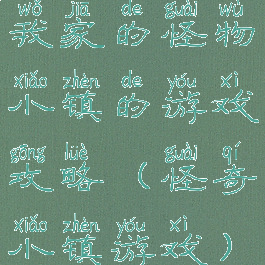 wǒ jiā de guài wù
我家的怪物
xiǎo zhèn de yóu xì
小镇的游戏
gōng lüè （guài qí
攻略（怪奇
xiǎo zhèn yóu xì
小镇游戏）